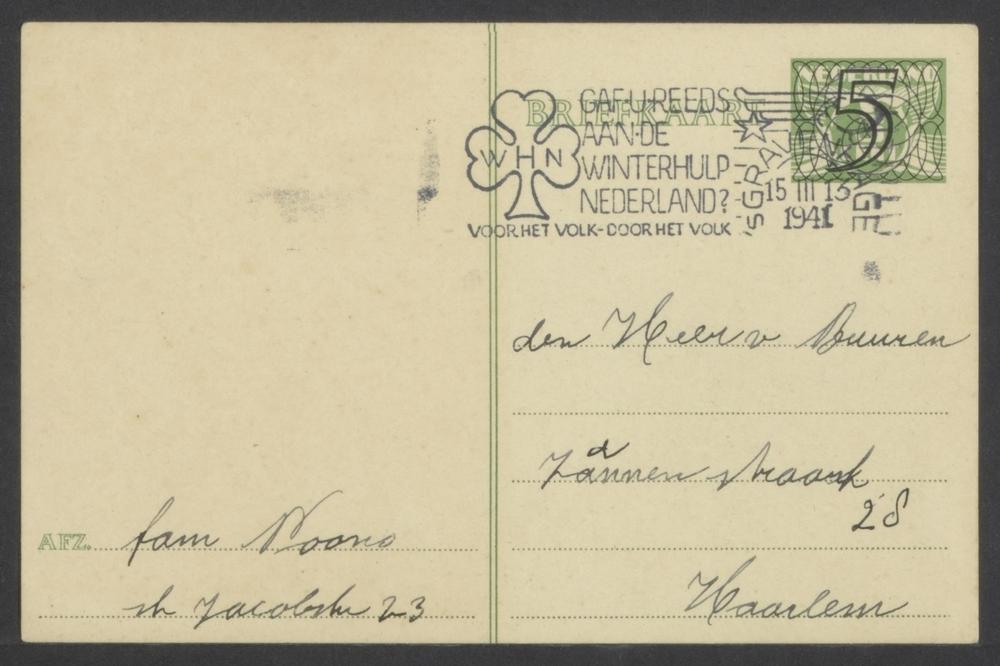 NEDERLAND
5
BRIEFKAART
GAF·U·REEDS
AAN·DE
WINTERHULP
NEDERLAND?
WHN
VOOR HET VOLK-DOOR HET VOLK
'SGRAVENHAGE
15 III 13
1941
den Heer v Buuren
straat
28
Haarlem
AFZ. fam
st Jacobstr 23